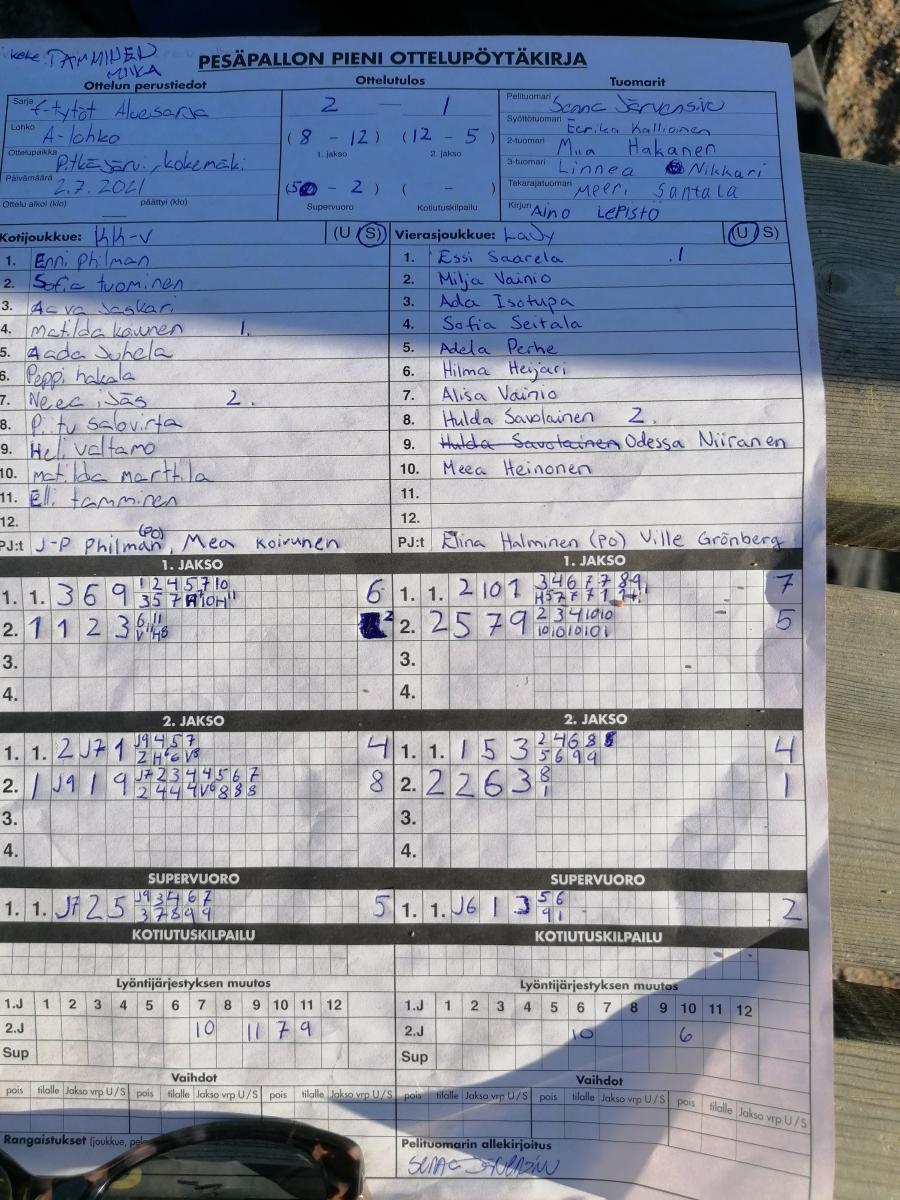 keke TAMMINEN
MIKA
PESÄPALLON PIENI OTTELUPÖYTÄKIRJA
Ottelun perustiedot
Sarja f-tytöt Aluesarja
Lohko A-lohko
Ottelupaikka Pitkäjärvi, kokemäki
Päivämäärä 2.7.2021
Ottelu alkoi (klo) päättyi (klo)
Ottelutulos
2 — 1
(8 - 12) (12 - 5)
1. jakso 2. jakso
(5 - 2) ( - )
Supervuoro Kotiutuskilpailu
Tuomarit
Pelituomari Senna Järvensivu
Syöttötuomari Eerika Kallioinen
2-tuomari Miia Hakanen
3-tuomari Linnea Nikkari
Takarajatuomari Meeri Santala
Kirjuri Aino Lepistö
Kotijoukkue: KK-V (U S)
1. Enni Philman
2. Sofia tuominen
3. Aava Jaskari
4. Matilda kaunen 1.
5. Aada Juhela
6. Peppi hakala
7. Neea ijäs 2.
8. Piitu salovirta
9. Heli valtamo
10. matilda marttila
11. Elli tamminen
12.
PJ:t J-P Philman (PO), Mea Koivunen
Vierasjoukkue: Lady (U S)
1. Essi Saarela .1
2. Milja Vainio
3. Ada Isotupa
4. Sofia Seitala
5. Adela Perhe
6. Hilma Heijari
7. Alisa Vainio
8. Hulda Savolainen 2.
9. Hulda Savolainen Odessa Niiranen
10. Meea Heinonen
11.
12.
PJ:t Elina Halminen (PO) Ville Grönberg
1. JAKSO
1. 1. 3 6 9 1 2 4 5 7 10 6
2. 1 1 2 3 6 11 2
3.
4.
1. JAKSO
1. 1. 2 10 1 3 4 6 7 7 8 9 7
2. 2 5 7 9 2 3 4 10 10 5
10 10 10 10 1
3.
4.
2. JAKSO
1. 1. 2 J7 1 J9 4 5 7 4
2. 1 J9 1 9 J7 2 3 4 4 5 6 7 8
2 4 4 4 V6 8 8 8
3.
4.
2. JAKSO
1. 1. 1 5 3 2 4 6 8 4
5 6 9 9
2. 2 2 6 3 8 1
1
3.
4.
SUPERVUORO
1. 1. J7 2 5 J9 3 4 6 7 5
3 7 8 9 9
SUPERVUORO
1. 1. J6 1 3 5 6 2
9 1
KOTIUTUSKILPAILU
KOTIUTUSKILPAILU
Lyöntijärjestyksen muutos
1.J 1 2 3 4 5 6 7 8 9 10 11 12
2.J 10 11 7 9
Sup
Lyöntijärjestyksen muutos
1.J 1 2 3 4 5 6 7 8 9 10 11 12
2.J 10 6
Sup
Vaihdot
pois tilalle Jakso vrp U/S pois tilalle Jakso vrp U/S pois tilalle Jakso vrp U/S
Vaihdot
pois tilalle Jakso vrp U/S pois tilalle Jakso vrp U/S pois tilalle Jakso vrp U/S
Rangaistukset (joukkue, pel
Pelituomarin allekirjoitus